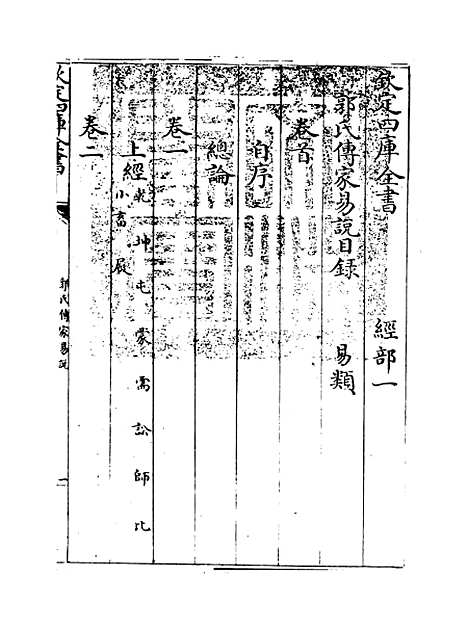 欽定四庫全書　經部一
郭氏傳家易説目録　易類
卷首
自序
總論
卷一
上經 乾 坤 屯 蒙 需 訟 師 比
小畜 履
卷二
欽定四庫全書
郭氏傳家易説
一